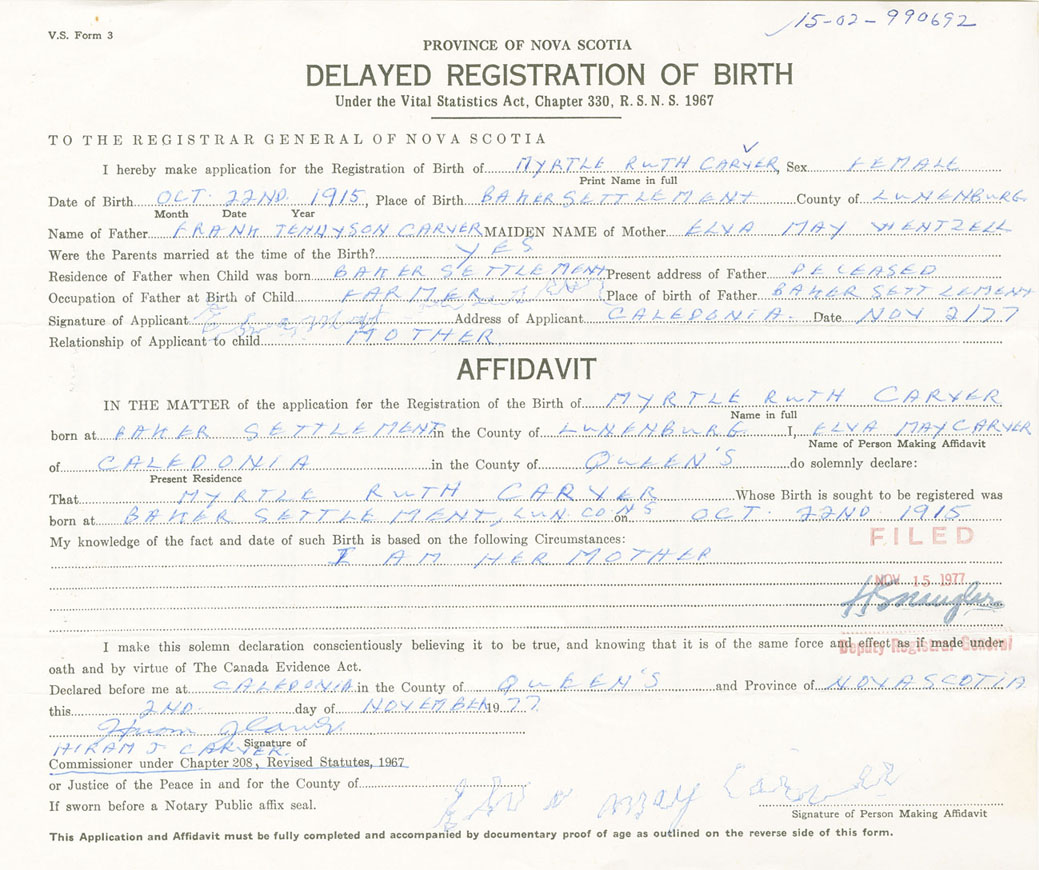 V.S. Form 3
15-02-990692
PROVINCE OF NOVA SCOTIA
DELAYED REGISTRATION OF BIRTH
Under the Vital Statistics Act, Chapter 330, R. S. N. S. 1967
TO THE REGISTRAR GENERAL OF NOVA SCOTIA
I hereby make application for the Registration of Birth of MYRTLE RUTH CARVER, Sex FEMALE
Print Name in full
Date of Birth OCT. 22ND. 1915, Place of Birth BAKER SETTLEMENT County of LUNENBURG
Month Date Year
Name of Father FRANK TENNYSON CARVER MAIDEN NAME of Mother ELVA MAY WENTZELL
Were the Parents married at the time of the Birth? YES
Residence of Father when Child was born BAKER SETTLEMENT Present address of Father DECEASED
Occupation of Father at Birth of Child FARMER Place of birth of Father BAKER SETTLEMENT
Signature of Applicant Elva May Address of Applicant CALEDONIA. Date NOV 2/77
Relationship of Applicant to child MOTHER
AFFIDAVIT
IN THE MATTER of the application for the Registration of the Birth of MYRTLE RUTH CARVER
Name in full
born at BAKER SETTLEMENT in the County of LUNENBURG I, ELVA MAY CARVER
Name of Person Making Affidavit
of CALEDONIA in the County of QUEEN'S do solemnly declare:
Present Residence
That MYRTLE RUTH CARVER Whose Birth is sought to be registered was
born at BAKER SETTLEMENT, LUN. CO. NS on OCT. 22ND. 1915
My knowledge of the fact and date of such Birth is based on the following Circumstances:
I AM HER MOTHER
FILED
NOV 15 1977
Deputy Registrar General
I make this solemn declaration conscientiously believing it to be true, and knowing that it is of the same force and effect as if made under
oath and by virtue of The Canada Evidence Act.
Declared before me at CALEDONIA in the County of QUEEN'S and Province of NOVA SCOTIA
this 2ND. day of NOVEMBER 1977.
HIRAM J CARVER.
Signature of
Commissioner under Chapter 208, Revised Statutes, 1967
or Justice of the Peace in and for the County of
If sworn before a Notary Public affix seal.
Elva May Carver
Signature of Person Making Affidavit
This Application and Affidavit must be fully completed and accompanied by documentary proof of age as outlined on the reverse side of this form.